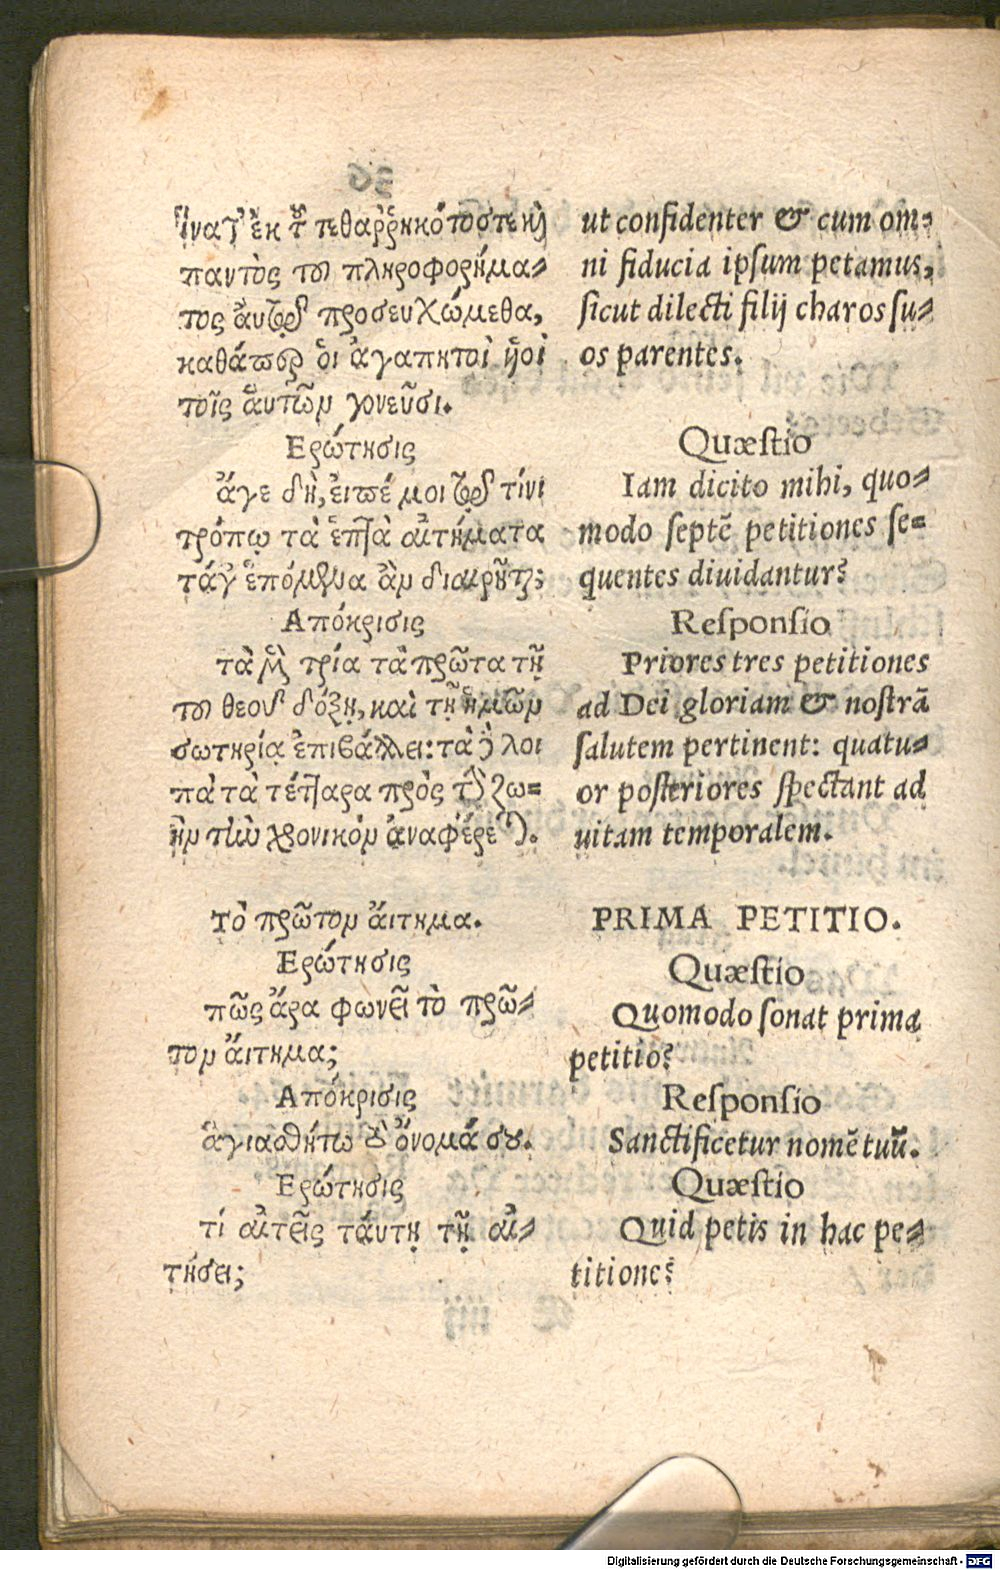 ἵνα τ' ἐκ τοῦ τεθαῤῥηκότος τε καὶ
παντὸς του πληροφορήμα-
τος ἀυτὸν προσευχώμεθα,
καθάπερ ὁι ἀγαπητοὶ ὑοὶ
τοῖς ἁυτῶν γονεῦσι.
Ερώτησις
ἄγε δὴ, ἐιπέ μοι τίνι
τρόπῳ τὰ ἑπτὰ αἰτήματα
τάγ' ἑπόμενα ἂν διαιροῦται;
Απόκρισις
τὰ μὲν τρία τὰ πρῶτα τῇ
του θεου δόξῃ, καὶ τῇ ἡμῶν
σωτηρίᾳ ἐπιβάλλει: τὰ δὲ λοι
πὰ τὰ τέτταρα πρὸς τὴν ζω-
ὴν τὴν χρονικὸν ἀναφέρεται.
Τὸ πρῶτον ἄιτημα.
Ερώτησις
πῶς ἄρα φωνεῖ τὸ πρῶ-
τον ἄιτημα;
Απόκρισις
ἁγιασθήτω τὸ ὄνομά σου.
Ερώτησις
τί αἰτεῖς τάυτῃ τῇ αἰ-
τήσει;
ut confidenter & cum om-
ni fiducia ipsum petamus,
sicut dilecti filij charos su-
os parentes.
Quæstio
Iam dicito mihi, quo-
modo septē petitiones se-
quentes diuidantur?
Responsio
Priores tres petitiones
ad Dei gloriam & nostrā
salutem pertinent: quatu-
or posteriores spectant ad
uitam temporalem.
PRIMA PETITIO.
Quæstio
Quomodo sonat prima
petitio?
Responsio
Sanctificetur nomē tuū.
Quæstio
Quid petis in hac pe-
titione?
Digitalisierung gefördert durch die Deutsche Forschungsgemeinschaft - DFG